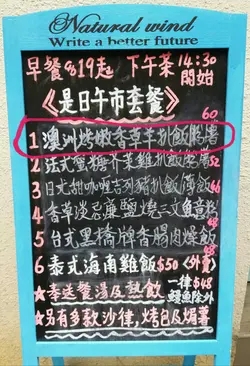 Natural wind
Write a better future
早餐9:19起 下午茶14:30
開始
《是日午市套餐》
60
1 澳洲烤嫩香草羊扒飯
2 法式蜜糖芥茉雞扒飯 52
3 日式甜咖喱吉列豬扒飯 50
4 香草淡忌廉鹽燒三文魚意粉
5 台式黑橋牌香腸肉燥飯 48
6 泰式海南雞飯$50 (外賣)
一律$48
鰻魚除外
★奉送餐湯及熱飲
★另有多款沙律,烤包及焗薯